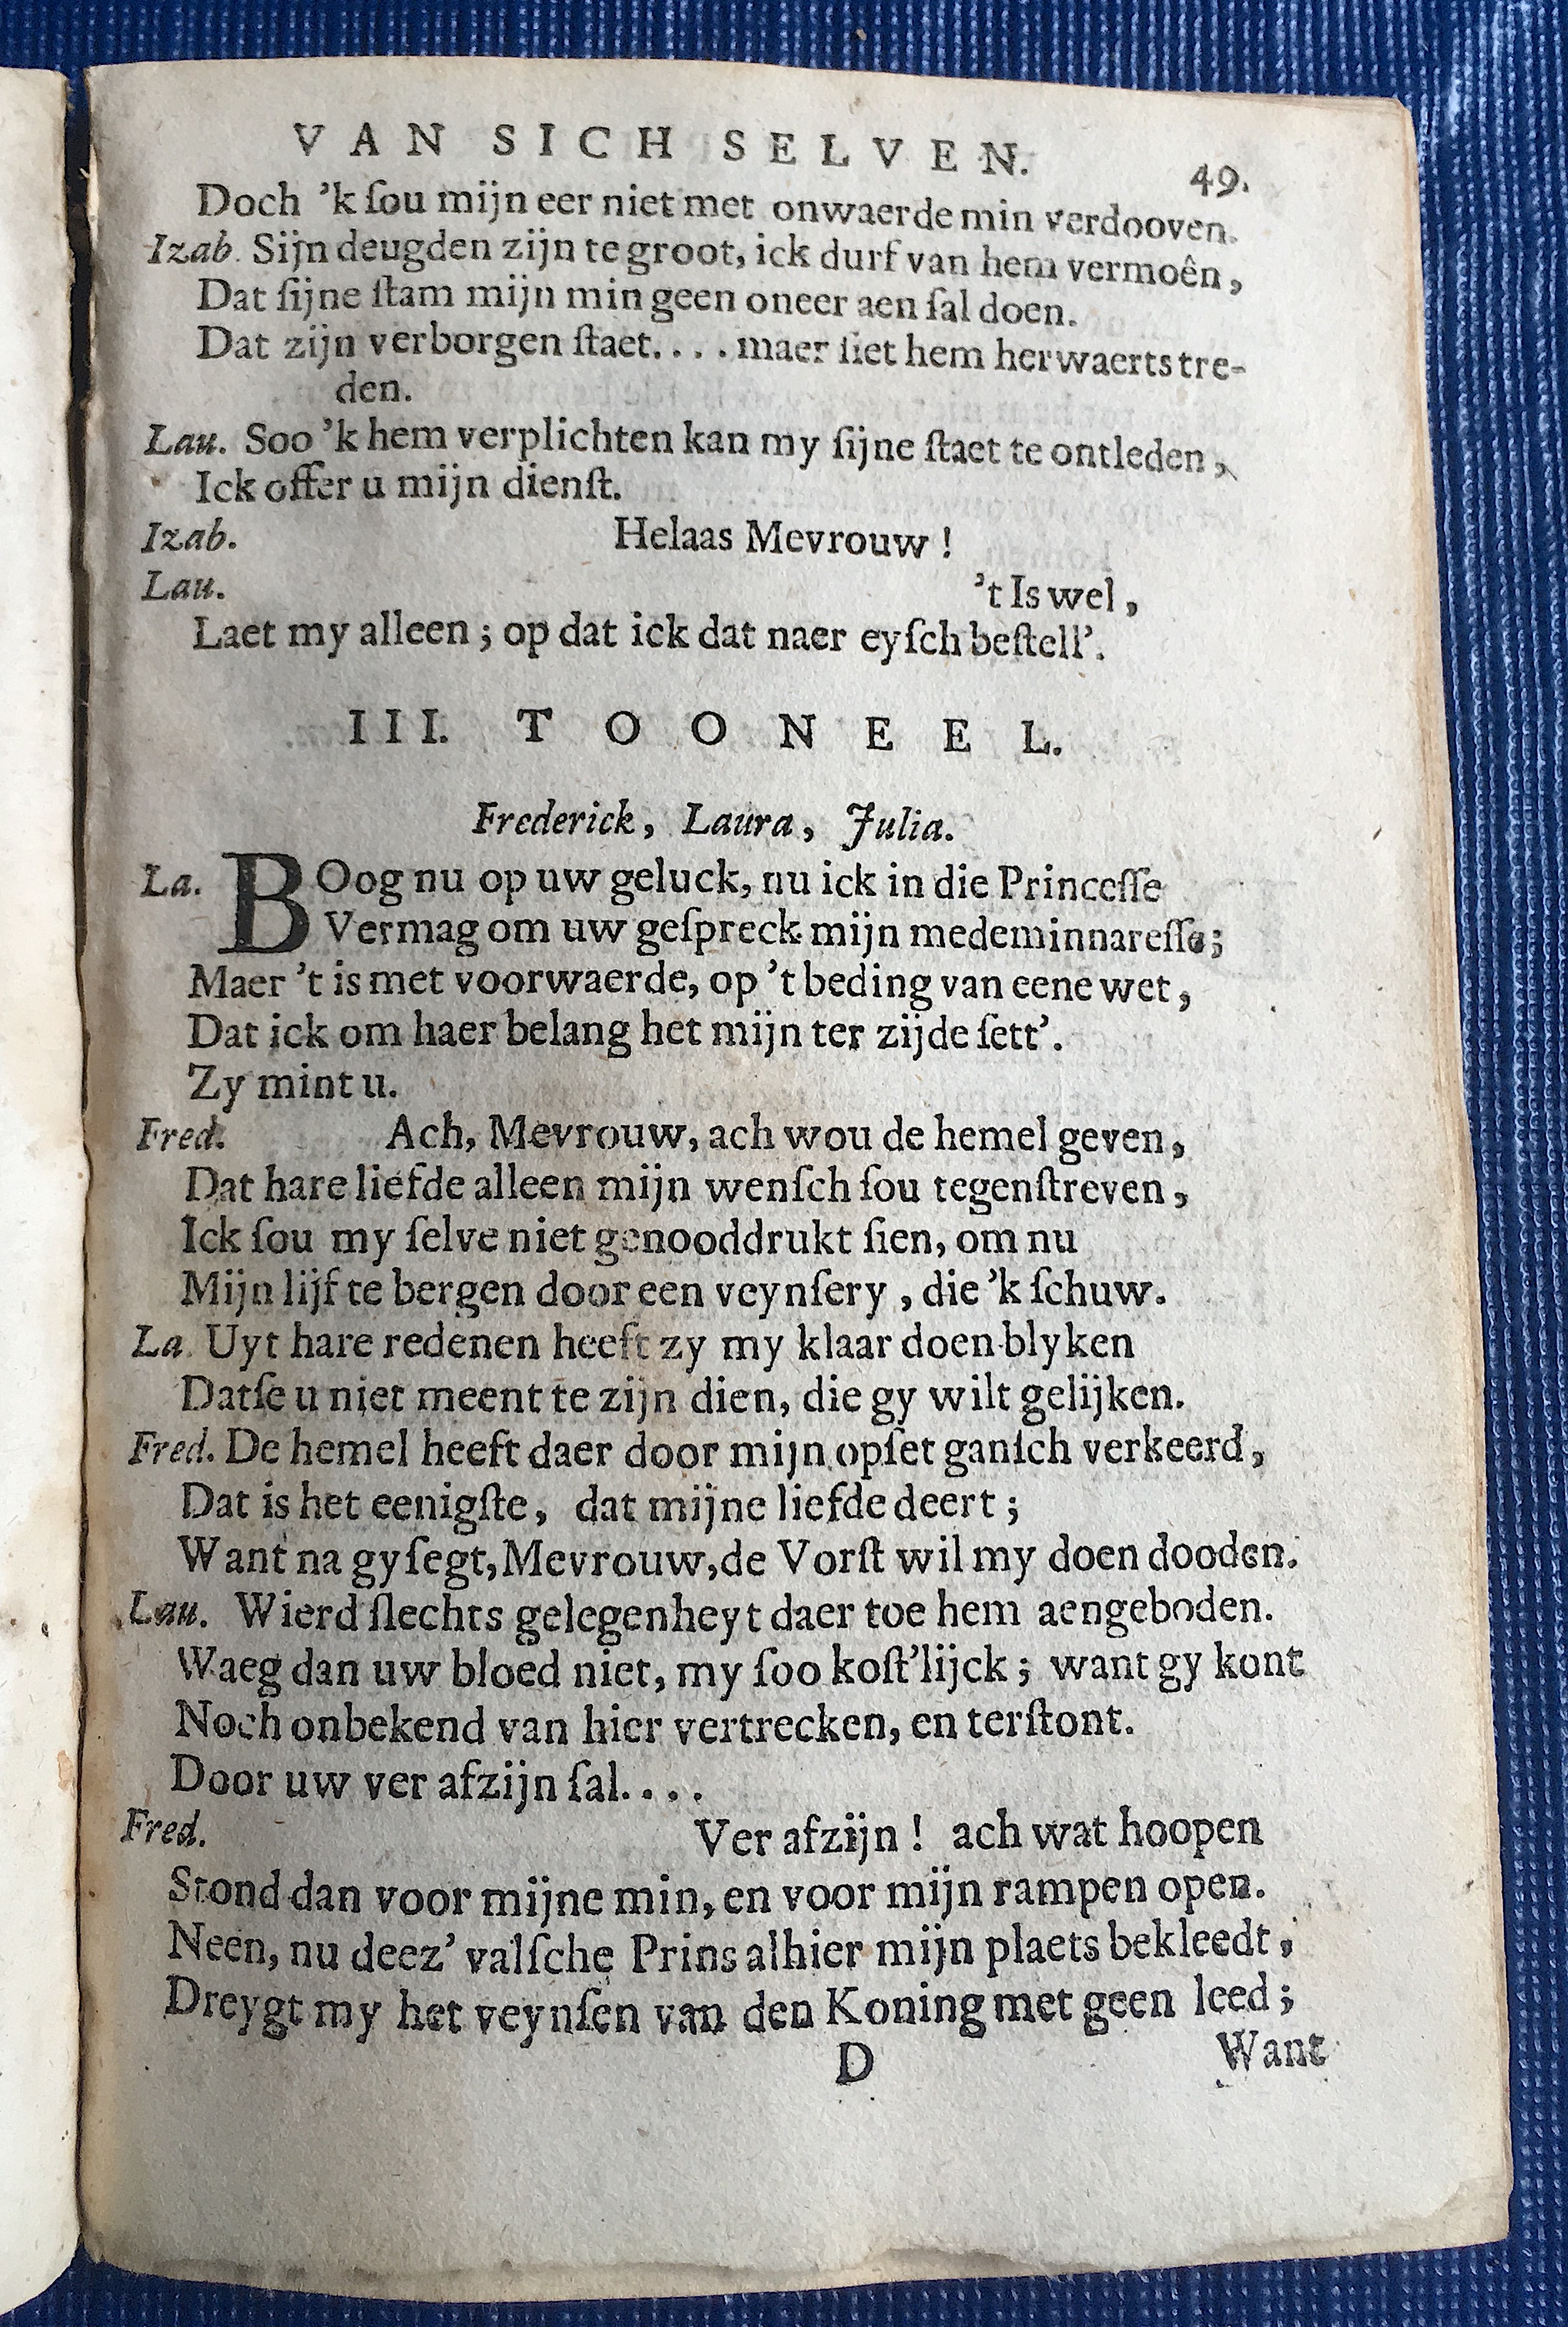 VAN SICH SELVEN. 49.
Doch 'k ſou mijn eer niet met onwaerde min verdooven.
Izab. Sijn deugden zijn te groot, ick durf van hem vermoên,
Dat ſijne ſtam mijn min geen oneer aen ſal doen.
Dat zijn verborgen ſtaet.... maer ſiet hem herwaerts tre-
den.
Lau. Soo 'k hem verplichten kan my ſijne ſtaet te ontleden,
Ick offer u mijn dienſt.
Izab. Helaas Mevrouw!
Lau. 't Is wel,
Laet my alleen; op dat ick dat naer eyſch beſtell'.
III. TOONEEL.
Frederick, Laura, Julia.
La. BOog nu op uw geluck, nu ick in die Princeſſe
Vermag om uw geſpreck mijn medeminnareſſe;
Maer 't is met voorwaerde, op 't beding van eene wet,
Dat ick om haer belang het mijn ter zijde ſett'.
Zy mint u.
Fred. Ach, Mevrouw, ach wou de hemel geven,
Dat hare liefde alleen mijn wenſch ſou tegenſtreven,
Ick ſou my ſelve niet genooddrukt ſien, om nu
Mijn lijf te bergen door een veynſery, die 'k ſchuw.
La. Uyt hare redenen heeft zy my klaar doen blyken
Datſe u niet meent te zijn dien, die gy wilt gelijken.
Fred. De hemel heeft daer door mijn opſet ganſch verkeerd,
Dat is het eenigſte, dat mijne liefde deert;
Want na gy ſegt, Mevrouw, de Vorſt wil my doen dooden.
Lau. Wierd ſlechts gelegenheyt daer toe hem aengeboden.
Waeg dan uw bloed niet, my ſoo koſt'lijck; want gy kont
Noch onbekend van hier vertrecken, en terſtont.
Door uw ver afzijn ſal....
Fred. Ver afzijn! ach wat hoopen
Stond dan voor mijne min, en voor mijn rampen open.
Neen, nu deez' valſche Prins alhier mijn plaets bekleedt,
Dreygt my het veynſen van den Koning met geen leed;
D Want